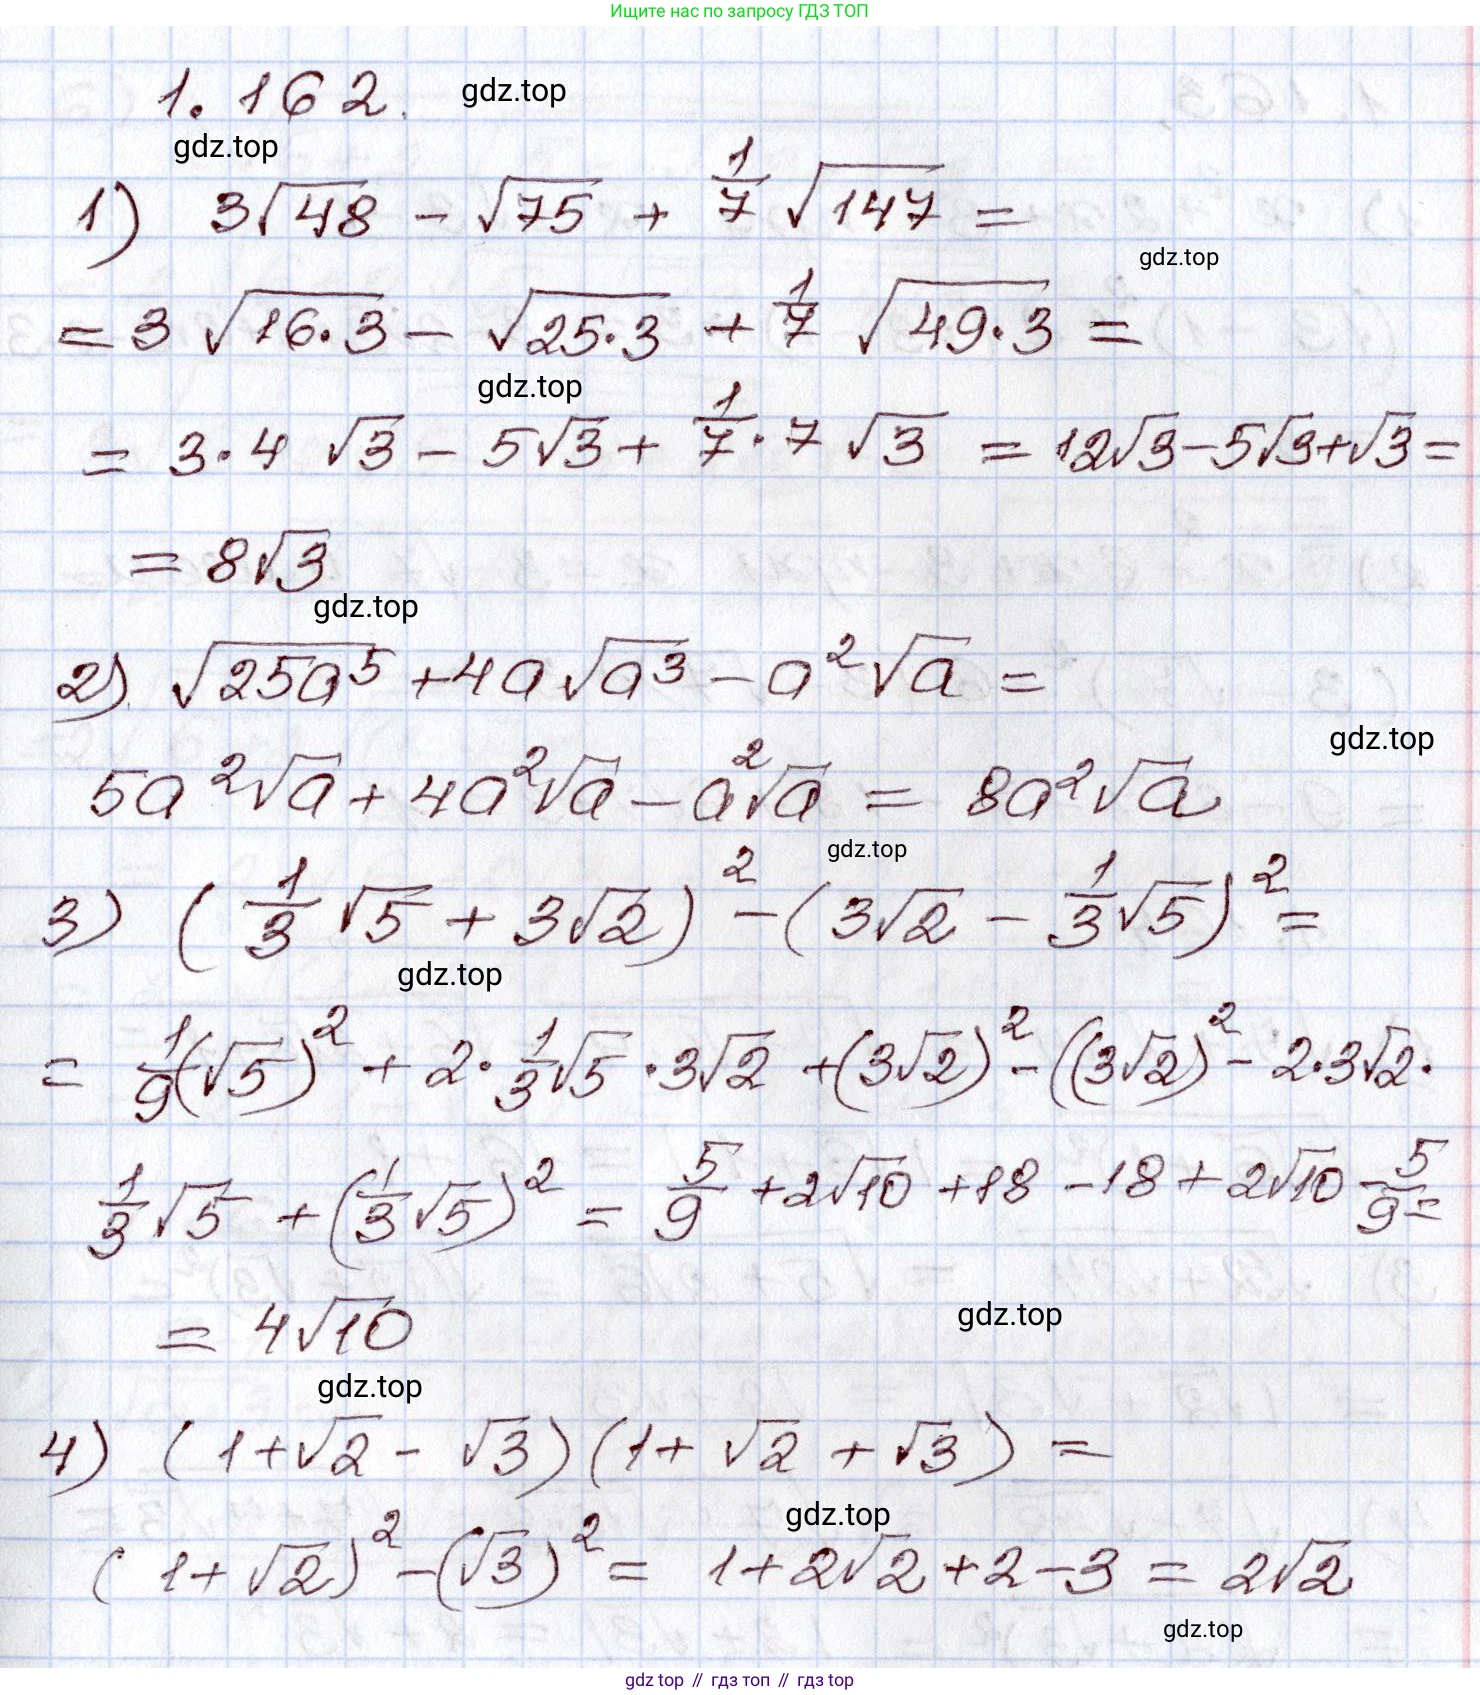 Ищите нас по запросу ГДЗ ТОП
1.162. gdz.top
gdz.top
1) 3√48 - √75 + 1/7 √147 =
gdz.top
= 3 √16·3 - √25·3 + 1/7 √49·3 =
gdz.top
= 3·4 √3 - 5√3 + 1/7 · 7 √3 = 12√3 - 5√3 + √3 =
= 8√3
gdz.top
2) √25a⁵ + 4a√a³ - a²√a =
gdz.top
5a²√a + 4a²√a - a²√a = 8a²√a
gdz.top
3) (1/3 √5 + 3√2)² - (3√2 - 1/3 √5)² =
gdz.top
= 1/9 (√5)² + 2·1/3 √5 · 3√2 + (3√2)² - ((3√2)² - 2·3√2·
1/3 √5 + (1/3 √5)² = 5/9 + 2√10 + 18 - 18 + 2√10 - 5/9 =
= 4√10
gdz.top
gdz.top
4) (1 + √2 - √3)(1 + √2 + √3) =
gdz.top
(1 + √2)² - (√3)² = 1 + 2√2 + 2 - 3 = 2√2
gdz.top
gdz top // гдз топ // gdz top